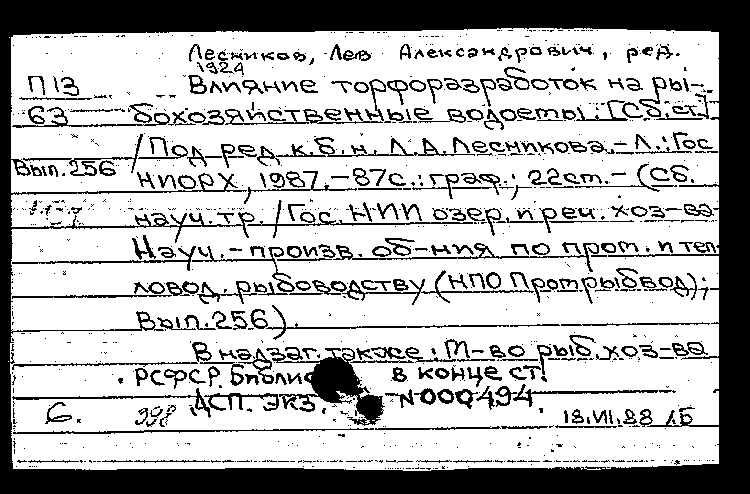 Лесников, Лев Александрович, ред.
1924
П13 Влияние торфоразработок на ры-
63 бохозяйственные водоемы: [Сб. ст.]
/Под ред. к.б.н. Л.А.Лесникова.-Л.: Гос
Вып.256 НИОРХ, 1987.-87с.: граф.; 22см.- (Сб.
науч.тр./Гос.НИИ озер. и реч. хоз-ва
Науч.-произв. об-ния по пром. и теп-
ловод. рыбоводству (НПО Промрыбвод);
Вып.256).
В надзаг. также: М-во рыб. хоз-ва
РСФСР. Библио в конце ст.
ДСП. Экз. N000494.
6. 398 13.VI.88 ЛБ